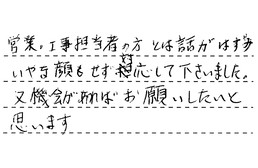 営業、工事担当者の方とは話がはずみ
いやな顔もせず対応して下さいました。
又機会があればお願いしたいと
思います